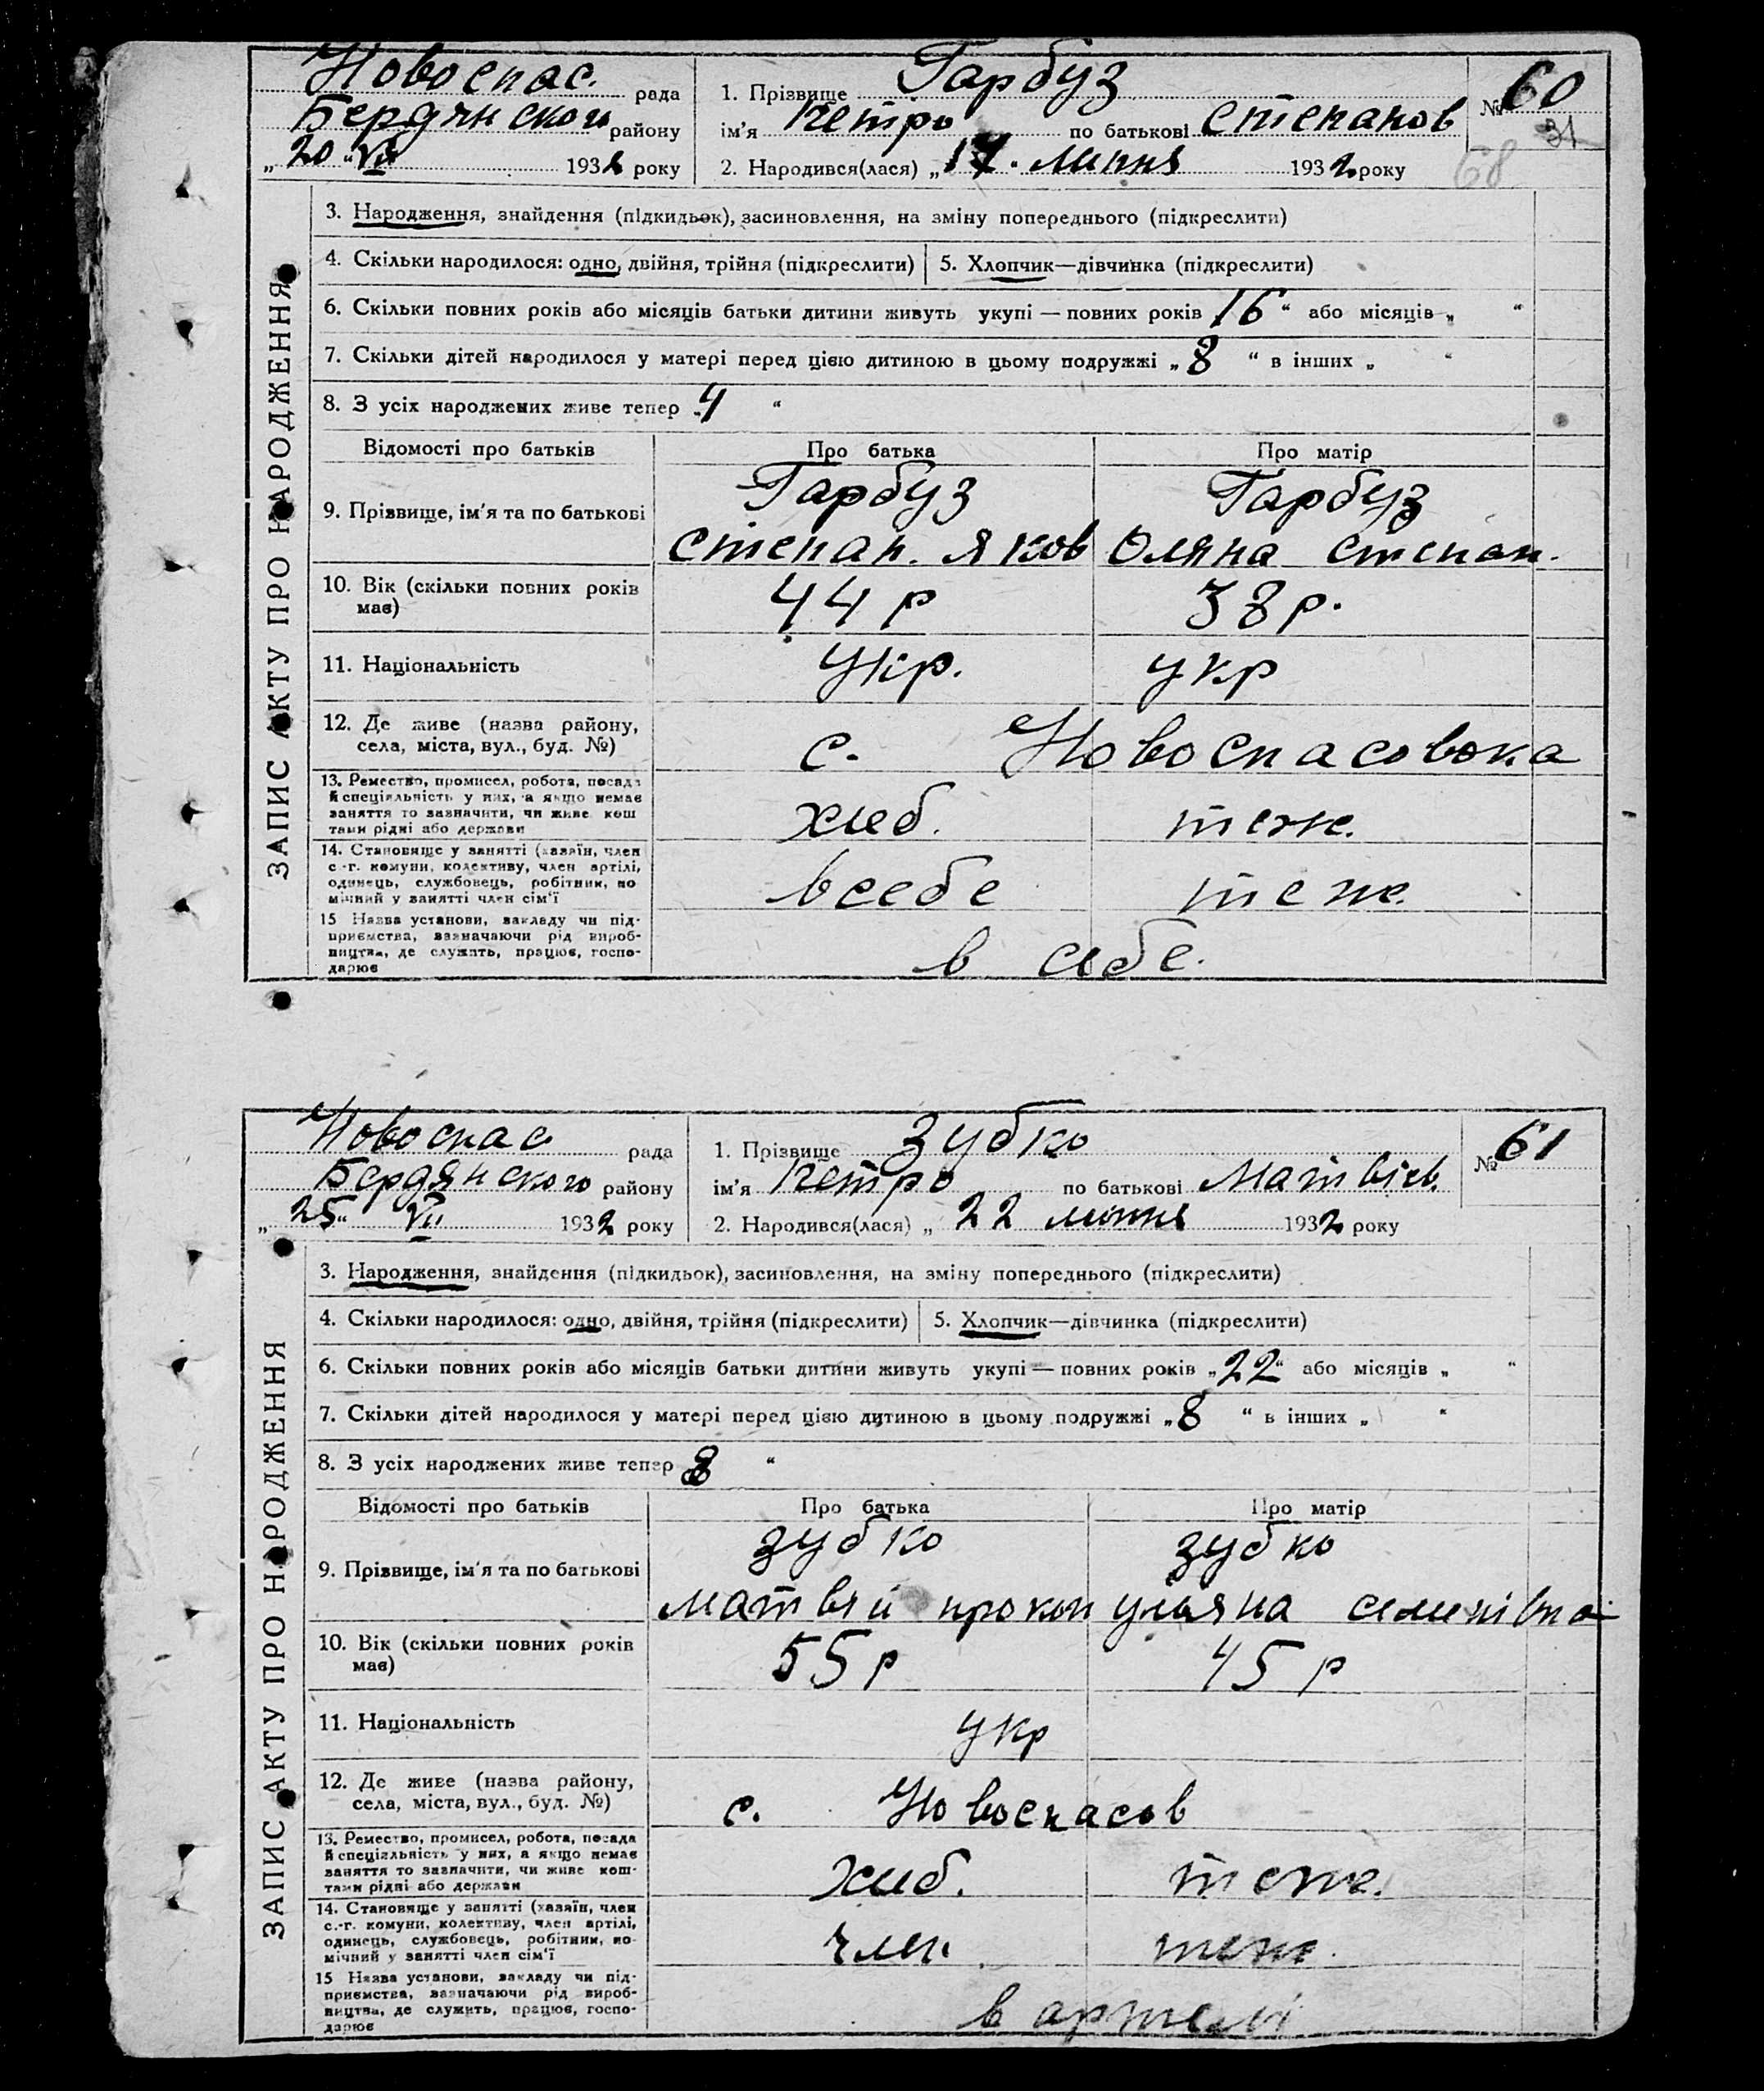 Новоспас. рада
Бердянского району
„20“ VII 1932 року
1. Прізвище Гарбуз
ім'я Петро по батькові Степанов
2. Народився(лася) „17“ липня 1932 року
№ 60
31
68
ЗАПИС АКТУ ПРО НАРОДЖЕННЯ
3. Народження, знайдення (підкидьок), засиновлення, на зміну попереднього (підкреслити)
4. Скільки народилося: одно, двійня, трійня (підкреслити) 5. Хлопчик—дівчинка (підкреслити)
6. Скільки повних років або місяців батьки дитини живуть укупі — повних років „16“ або місяців „ “
7. Скільки дітей народилося у матері перед цією дитиною в цьому подружжі „8“ в інших „ “
8. З усіх народжених живе тепер „4“
Відомості про батьків Про батька Про матір
9. Прізвище, ім'я та по батькові
Гарбуз Гарбуз
Степан. Яков Оляна Степан.
10. Вік (скільки повних років
має)
44 р 38 р.
11. Національність укр. укр
12. Де живе (назва району,
села, міста, вул., буд. №)
с. Новоспасовока
13. Ремество, промисел, робота, посада
й спеціяльність у них, а якщо немає
заняття то зазначити, чи живе кош
тами рідні або держави
хліб. теж.
14. Становище у занятті (хазяїн, член
с.-г. комуни, колективу, член артілі,
одинець, службовець, робітник, по
мічний у занятті член сім'ї
в себе теж.
15 Назва установи, закладу чи під-
приємства, зазначаючи рід вироб-
ництва, де служить, працює, госпо-
дарює
в себе.
Новоспас рада
Бердянского району
„25“ VII 1932 року
1. Прізвище Зубко
ім'я Петро по батькові Матвієв.
2. Народився(лася) „ 22 липня 1932 року
№ 61
ЗАПИС АКТУ ПРО НАРОДЖЕННЯ
3. Народження, знайдення (підкидьок), засиновлення, на зміну попереднього (підкреслити)
4. Скільки народилося: одно, двійня, трійня (підкреслити) 5. Хлопчик—дівчинка (підкреслити)
6. Скільки повних років або місяців батьки дитини живуть укупі — повних років „22“ або місяців „ “
7. Скільки дітей народилося у матері перед цією дитиною в цьому подружжі „8“ в інших „ “
8. З усіх народжених живе тепер 8 “
Відомості про батьків Про батька Про матір
9. Прізвище, ім'я та по батькові
Зубко Зубко
Матвій прокоп ульяна семенівна
10. Вік (скільки повних років
має)
55 р 45 р
11. Національність укр
12. Де живе (назва району,
села, міста, вул., буд. №)
с. Новоспасов
13. Ремество, промисел, робота, посада
й спеціяльність у них, а якщо немає
заняття то зазначити, чи живе кош-
тами рідні або держави
хліб. теж.
14. Становище у занятті (хазяїн, член
с.-г. комуни, колективу, член артілі,
одинець, службовець, робітник, по-
мічний у занятті член сім'ї
член. теж.
15 Назва установи, закладу чи під-
приємства, зазначаючи рід вироб-
ництва, де служить, працює, госпо-
дарює
в артелі